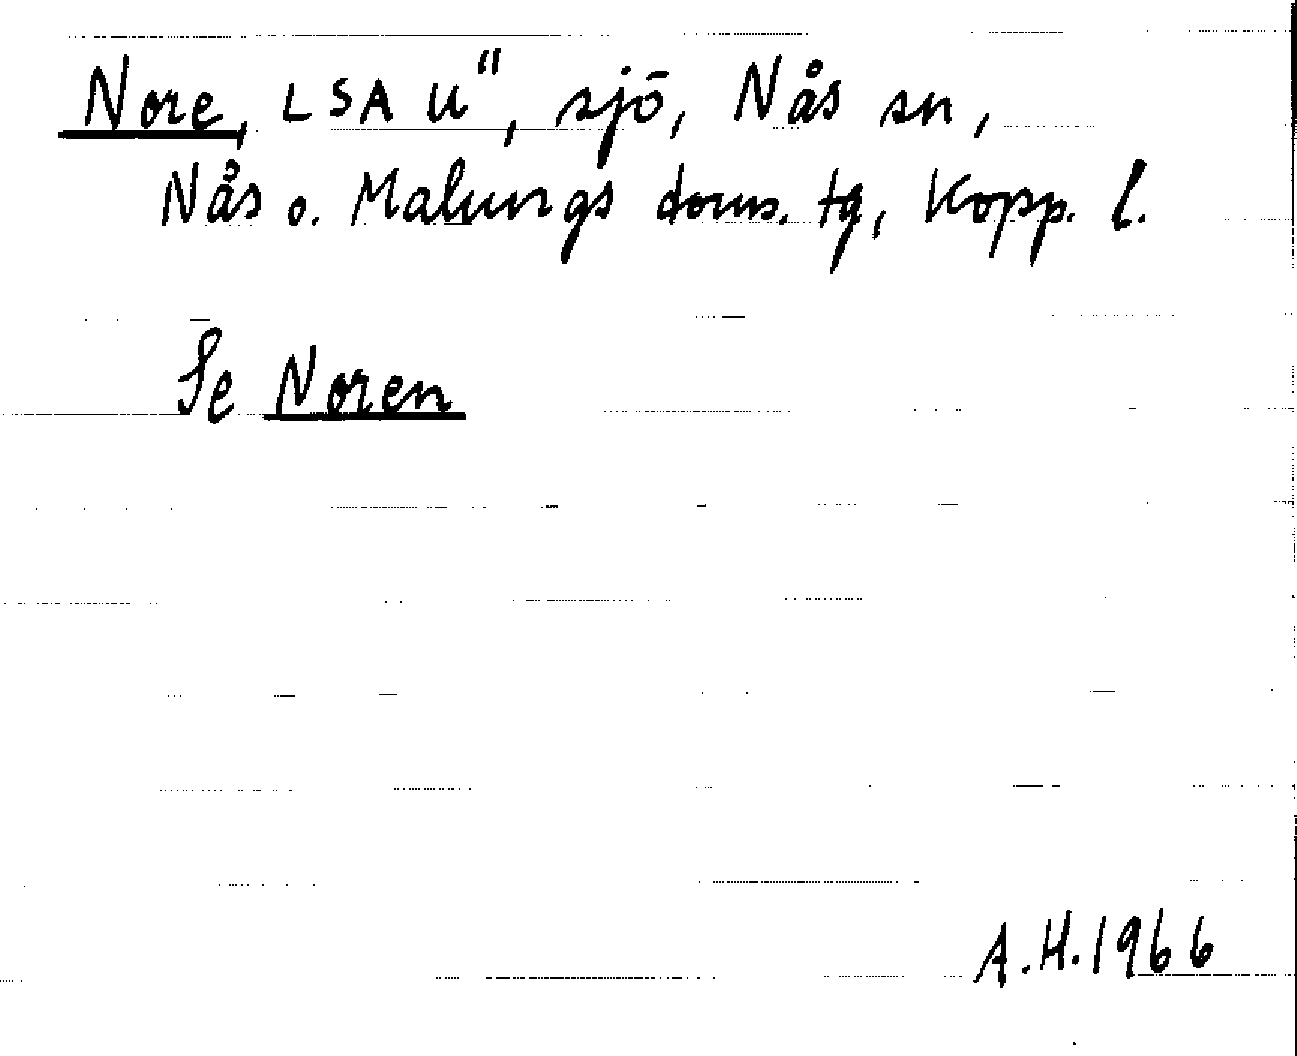 Nore, LSA U", sjö, Nås sn,
Nås o. Malungs doms. tg, Kopp. l.
Se Noren
A.H. 1966